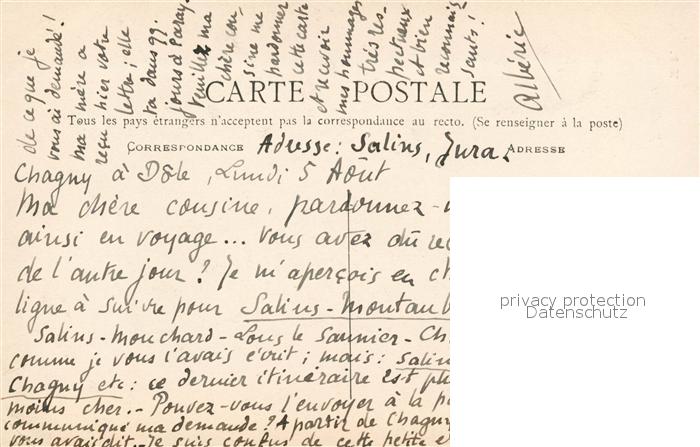 CARTE POSTALE
Tous les pays étrangers n'acceptent pas la correspondance au recto. (Se renseigner à la poste)
CORRESPONDANCE Adresse: Salins, Jura. ADRESSE
Chagny à Dôle, Lundi 5 Août
Ma chère cousine, pardonnez-
ainsi en voyage... Vous avez dû rec
de l'autre jour? Je m'aperçois en ch
ligne à suivre pour Salins-Montaub
Salins-Mouchard-Lons le Saunier-Ch
comme je vous l'avais écrit; mais: Salin
Chagny etc: ce dernier itinéraire est pl
moins cher.- Pouvez-vous l'envoyer à la p
communiqué ma demande? A partir de Chagny
vous avais dit.- Je suis confus de cette petite e
de ce que je
vous ai demandé!
ma mère a
reçu hier votre
lettre; elle
va dans qq.
jours à Paray.
Veuillez ma
chère cou-
sine me
pardonner
cette carte
et recevoir
mes hommages
très res-
pectueux
et bien
reconnais
sants!
Albéric
privacy protection
Datenschutz